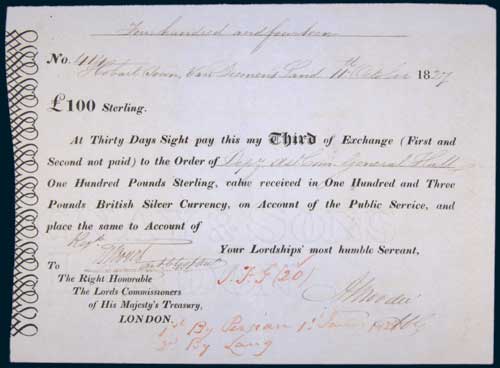 Four hundred and fourteen
No. 414
Hobart Town, Van Diemen's Land 11th October 1827
£100 Sterling.
At Thirty Days Sight pay this my Third of Exchange (First and
Second not paid) to the Order of General Hull
One Hundred Pounds Sterling, value received in One Hundred and Three
Pounds British Silver Currency, on Account of the Public Service, and
place the same to Account of
Your Lordships' most humble Servant,
To
The Right Honorable
The Lords Commissioners
of His Majesty's Treasury,
LONDON.
A Moodie
1st By Persian
2d By Lang